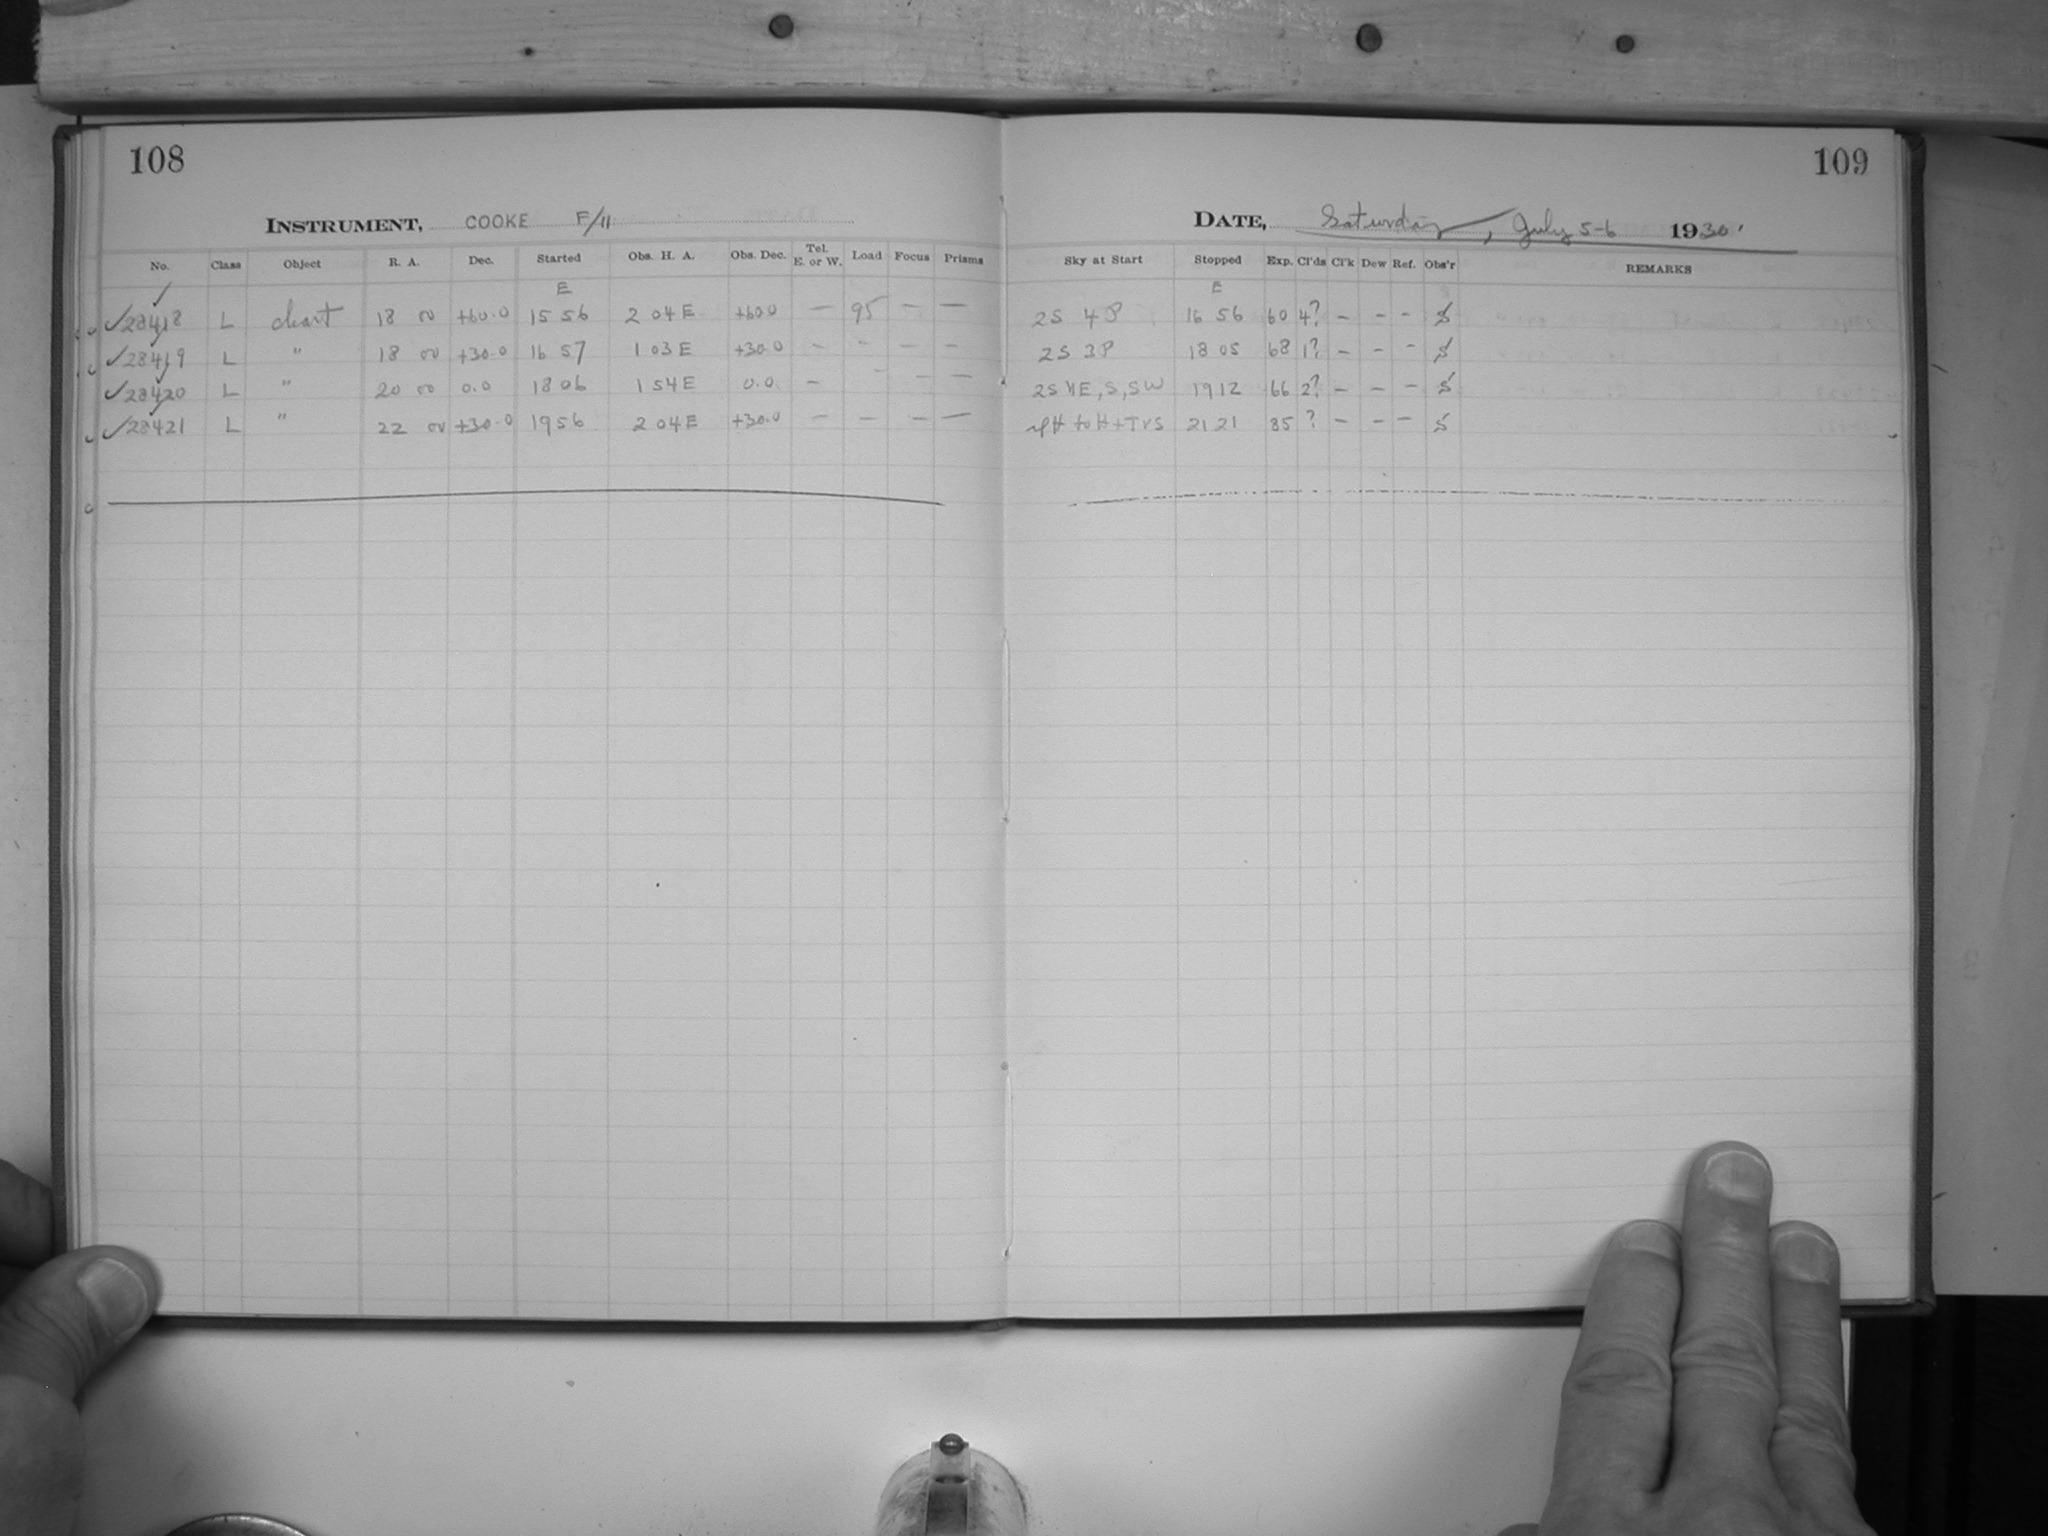 108
109
INSTRUMENT, COOKE F/11
DATE, Saturday, July 5-6 1930.
No. Class Object R. A. Dec. Started Obs. H. A. Obs. Dec. Tel. E. or W. Load Focus Prisms Sky at Start Stopped Exp. Cl'ds Cl'k Dew Ref. Obs'r REMARKS
E E
✓28418 L chart 18 00 +60.0 15 56 2 04 E +60.0 — 95 — — 2S 4P 16 56 60 4? — — — S
✓28419 L " 18 00 +30.0 16 57 1 03 E +30.0 — — — — 2S 3P 18 05 68 1? — — — S
✓28420 L " 20 00 0.0 18 06 1 54 E 0.0 — — — — 2S NE, S, SW 19 12 66 2? — — — S
✓28421 L " 22 00 +30.0 19 56 2 04 E +30.0 — — — — to H+TrS 21 21 85 ? — — — S